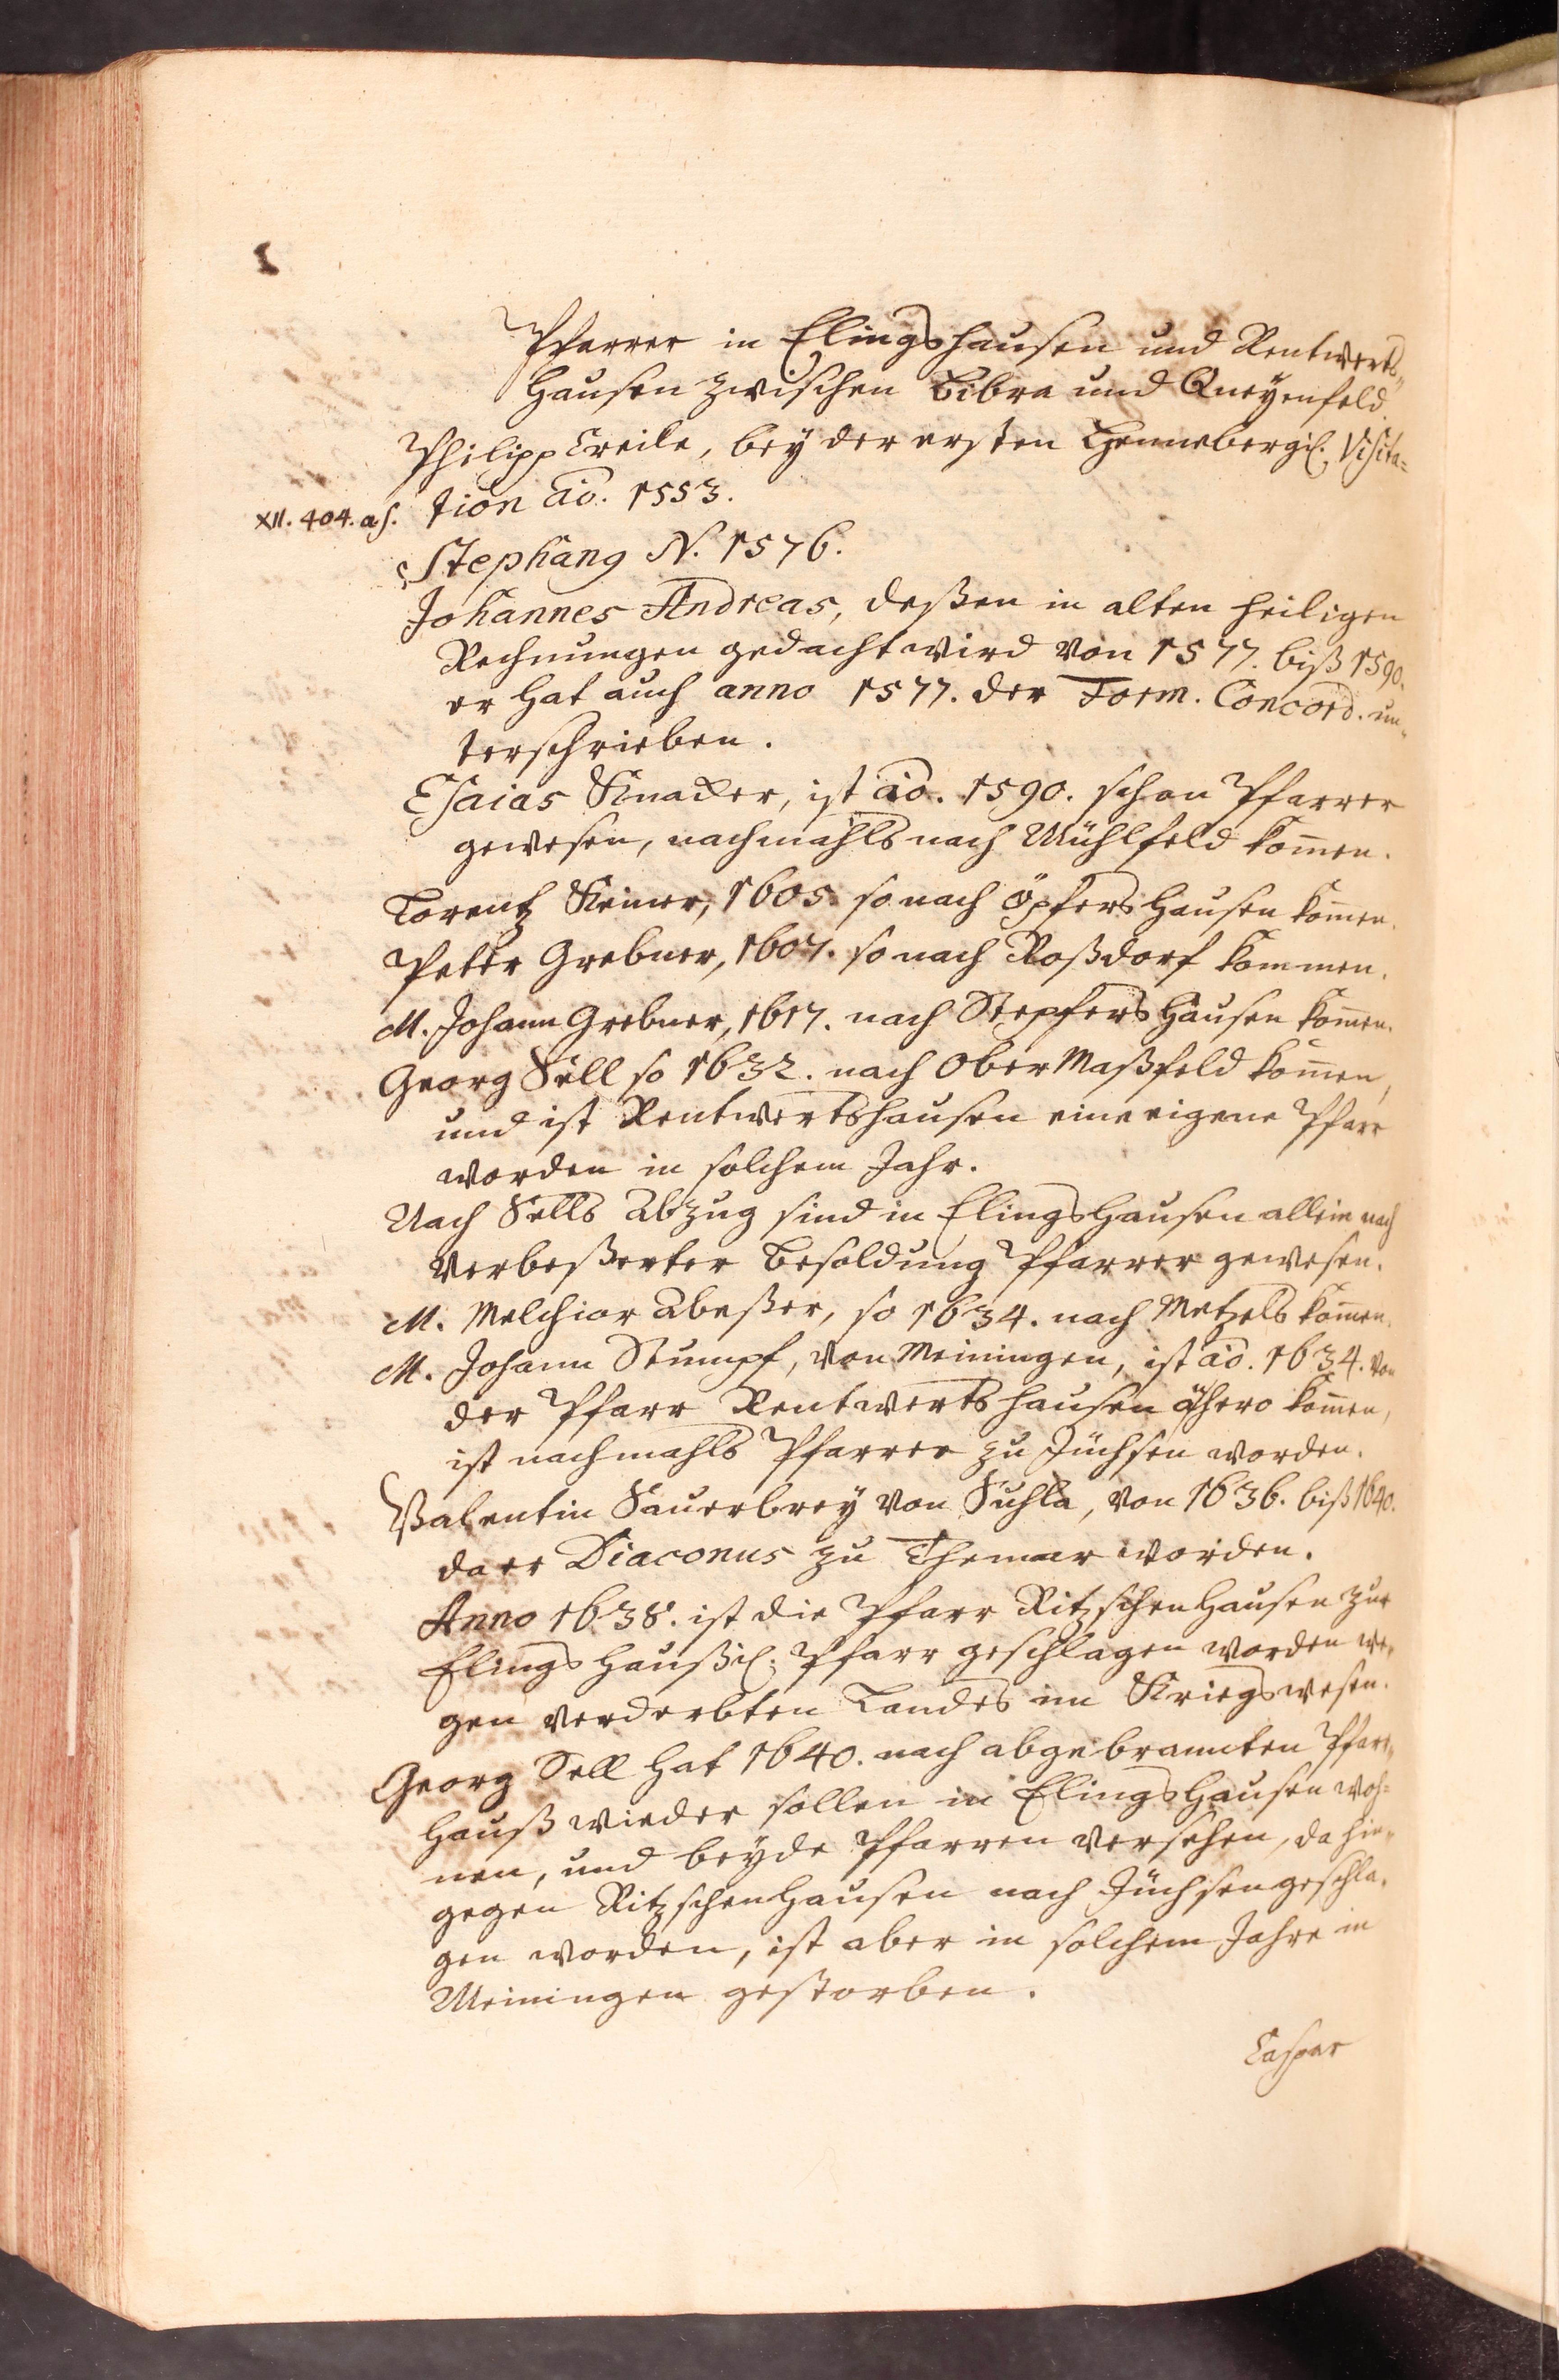 Pfarrer in Elingshausen und Rentwerts„
Hausen zwischen Bibra und Queyenfeld.
Philipp Creile, bey der ersten Hennebergl. Visita=
XII. 404. as. tion aō. 1553.
Stephang N. 1576.
Johannes Andreas, deßen in alten heiligen
Rechnungen gedacht wird von 1577. biß 1590.
er hat auch anno 1577. der Form. Concord. un„
terschrieben.
Esaias Knacker, ist aō. 1590. schon Pfarrer
gewesen, nachmahls nach Mühlfeld kom̄en.
Lorentz Keiner, 1605. so nach Öpfershausen kom̄en.
Peter Grebner, 1607. so nach Roßdorf kommen.
M. Johann Grebner, 1617. nach Stepfershausen kom̄en.
Georg Sell so 1632. nach Ober Maßfeld kom̄en,
und ist Rentwertshausen eine eigene Pfarr
worden in solchem Jahr.
Nach Sells Abzug sind in Elingshausen allein nach
verbeßerter Besoldung Pfarrer gewesen.
M. Melchior Abeßer, so 1634. nach Metzels kom̄en.
M. Johann Stumpf, von Meiningen, ist aō. 1634. von
der Pfarr Rentwertshausen ahero kom̄en,
ist nachmahls Pfarrer zu Jüchsen worden.
Valentin Sauerbrey von Suhla, von 1636. biß 1640.
da er Diaconus zu Themar worden.
Anno 1638. ist die Pfarr Ritzschenhausen zur
Elingshaußl. Pfarr geschlagen worden we„
gen verderbten Landes im Kriegswesen.
Georg Sell hat 1640. nach abgebrannten Pfarr„
hauß wieder sollen in Elingshausen woh=
nen, und beyde Pfarren versehen, da hin„
gegen Ritzschenhausen nach Jüchsen geschla„
gen worden, ist aber in solchem Jahre in
Meiningen gestorben.
Caspar